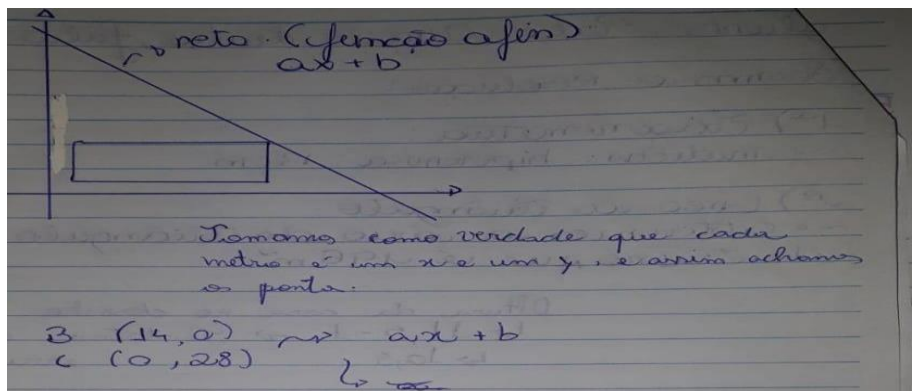 reta (função afin)
ax + b
Tomamos como verdade que cada
metro é um x e um y, e assim achamos
os ponto.
B (14,0) ~> ax + b
C (0,28)